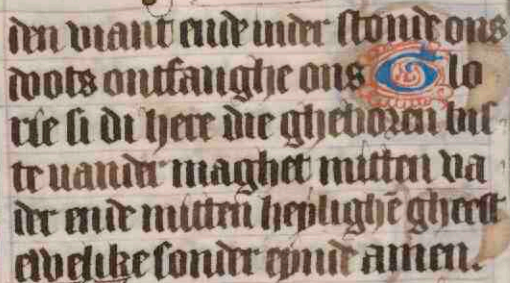 den viant ende inder stonde ons
doots ontfanghe ons Glo
rie si di here die gheboren bis
te vander maghet mitten va
der ende mitten heylighē gheest
ewelike sonder eynde amen.